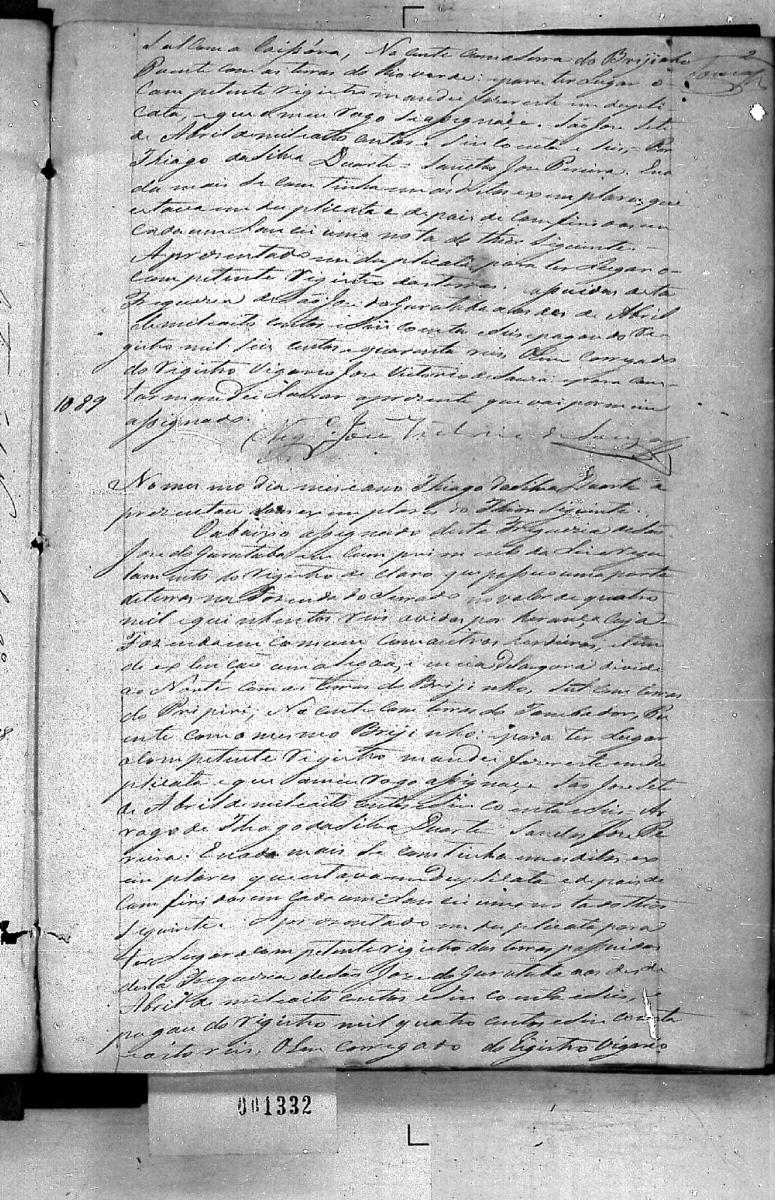 Sul com a Caissára, Nacente com a Serra do Brijinho
Puente com as terras do Rio verde: epara ter lugar o
Competente rigistro mandei fazer este em dupli-
cata, e que a meu rogo se assignace. São Jose sete
de Abril de mil oito centos e sincoenta e seis,
Thiago da Silva Duarte Sanctos Jose Pereira. Ena
da mais se continha em os ditos exemplares que
estava em duplicata e depois de comfirir os em
cada um lancei uma nota do thior siguinte.
Aprezentado em duplicata, para ter lugar o
competente rigistro das terras, apuidas desta
Freguezia de São Jose do Gurutuba aos des de Abril
de mil oito centos e sincoenta e seis e pagou do re-
gistro mil seis centos e quarenta reis. O Em carregado
do Rigistro Vigario Jose Victorio de Souza: epara cons-
tar mandei lavrar a prezente que vai por mim
assignado.
Vigº Jose Victorio de Souza
1089
No mesmo dia mes e anno Thiago da Silva Duarte a
prezentou dous exemplares do Thior Siguinte.
O abaixo assignado desta Freguezia de São
Jose do Gurutuba em comprimento da Lei e regu
lamento do rigistro declaro que possuo uma parte
de terras na Fazenda do Serrado no valor de quatro
mil e quinhentos reis avidas por herança cuja
Fazenda em comum com outros herdeiros, e tem
de extenção uma legoa, e meia de largura divide
ao Norte com as terras do Brijinho, Sul com terras
do Pripiri, Nacente com terras do Tombador, Pu
ente com o mesmo Brejinho: epara ter lugar
o competente rigistro mandei fazer este em du
plicata e que a meu rogo assignace São Jose Sete
de Abril de mil oito centos e sincoenta e seis. Ar
rogo de Thiago da Silva Duarte Sanctos Jose Pe
reira. E nada mais se continha em os ditos ex
emplares que estava em duplicata e depois de
comfirir os em cada um lancei uma nota do thior
Siguinte. Aprezentado em duplicata para
ter lugar o competente rigistro das terras possuidas
desta Freguezia de São Jose do Gurutuba aos des de
Abril de mil oito centos e sincoenta e seis, e
pagou do rigistro mil quatro centos e sincoenta
e oito reis, O Em carregado do Rigistro Vigario
001332